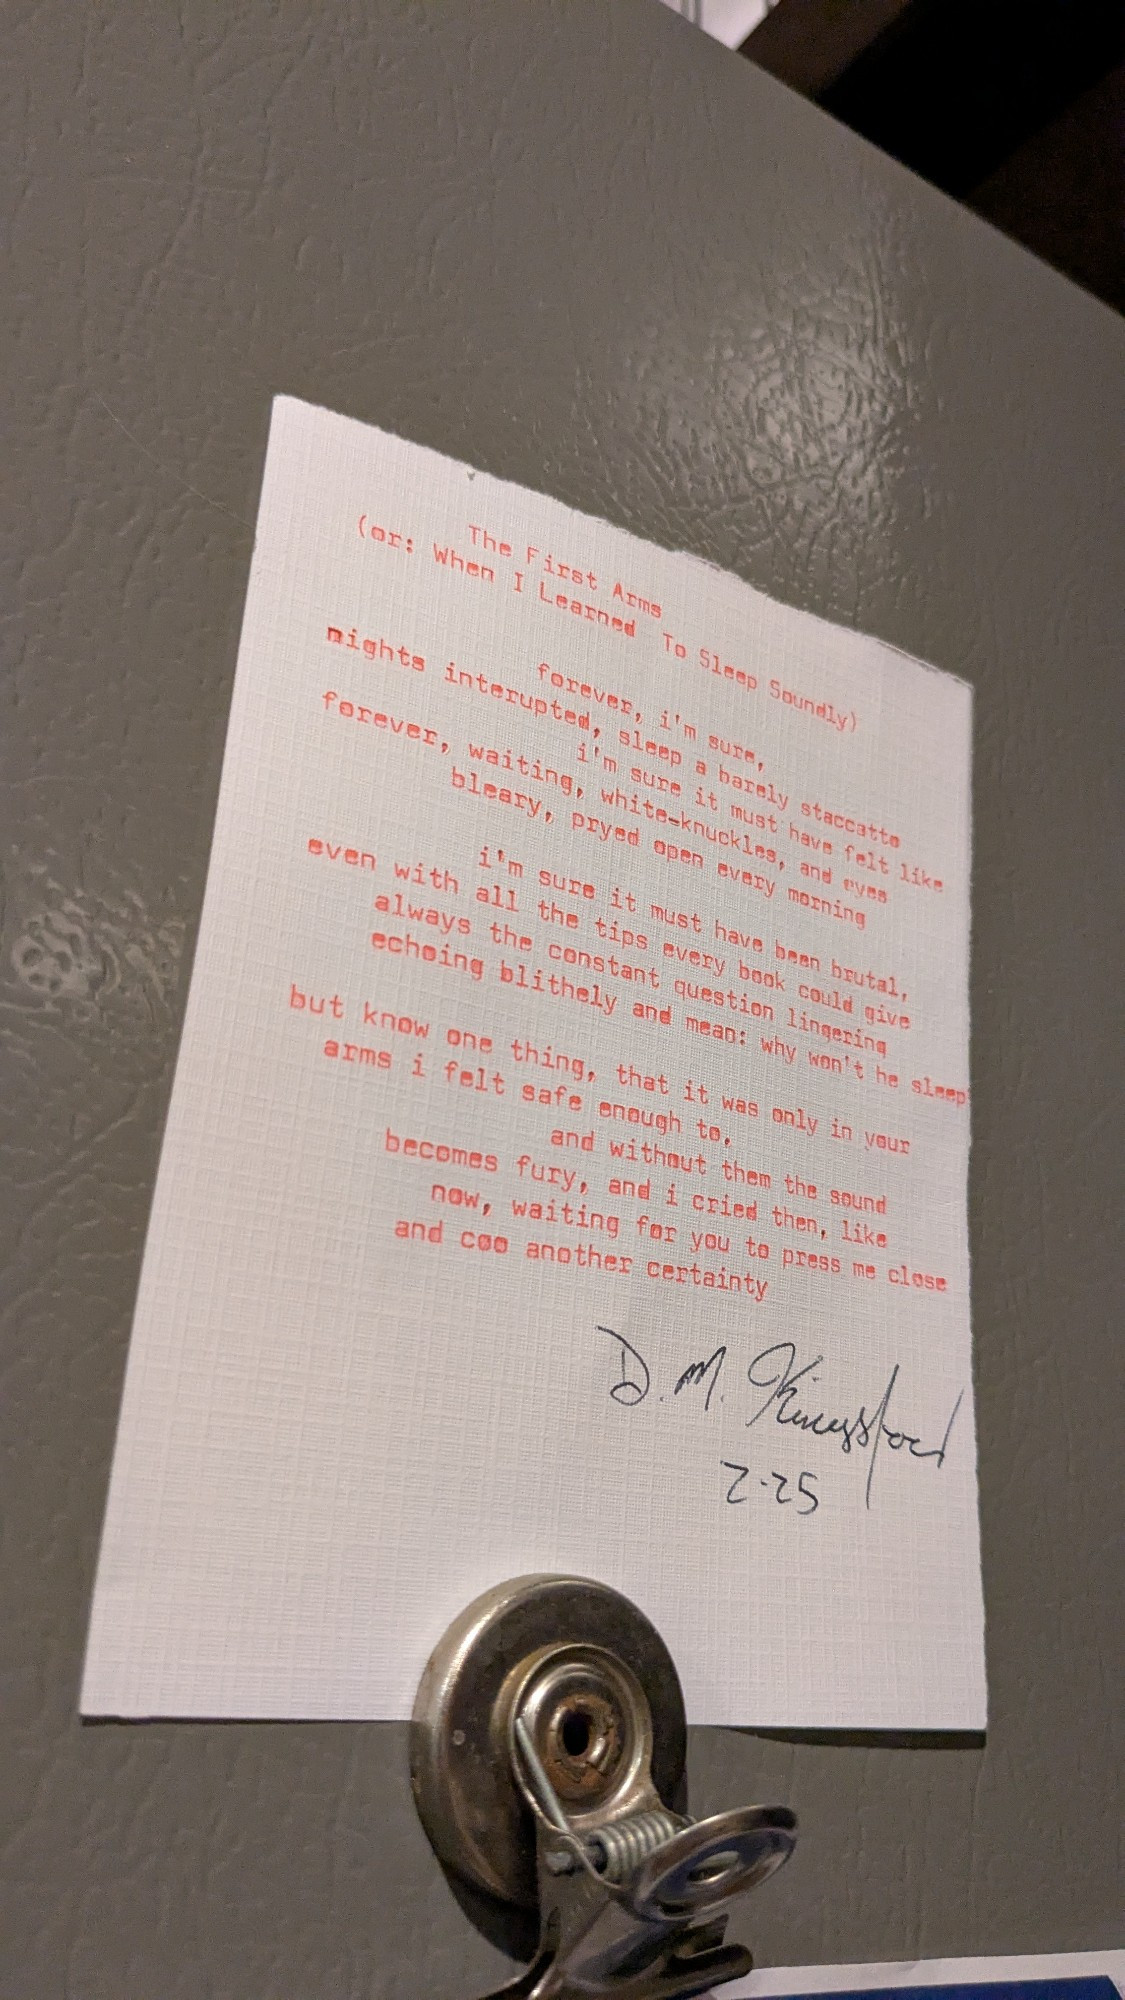 The First Arms
(or: When I Learned To Sleep Soundly)
forever, i'm sure,
nights interupted, sleep a barely staccatto
i'm sure it must have felt like
forever, waiting, white-knuckles, and eyes
bleary, pryed open every morning
i'm sure it must have been brutal,
even with all the tips every book could give
always the constant question lingering
echoing blithely and mean: why won't he sleep?
but know one thing, that it was only in your
arms i felt safe enough to,
and without them the sound
becomes fury, and i cried then, like
now, waiting for you to press me close
and coo another certainty
D. M. Kingsford
2-25